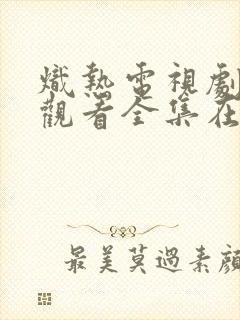 熾熱電視劇
觀看全集在
最美莫過素顏